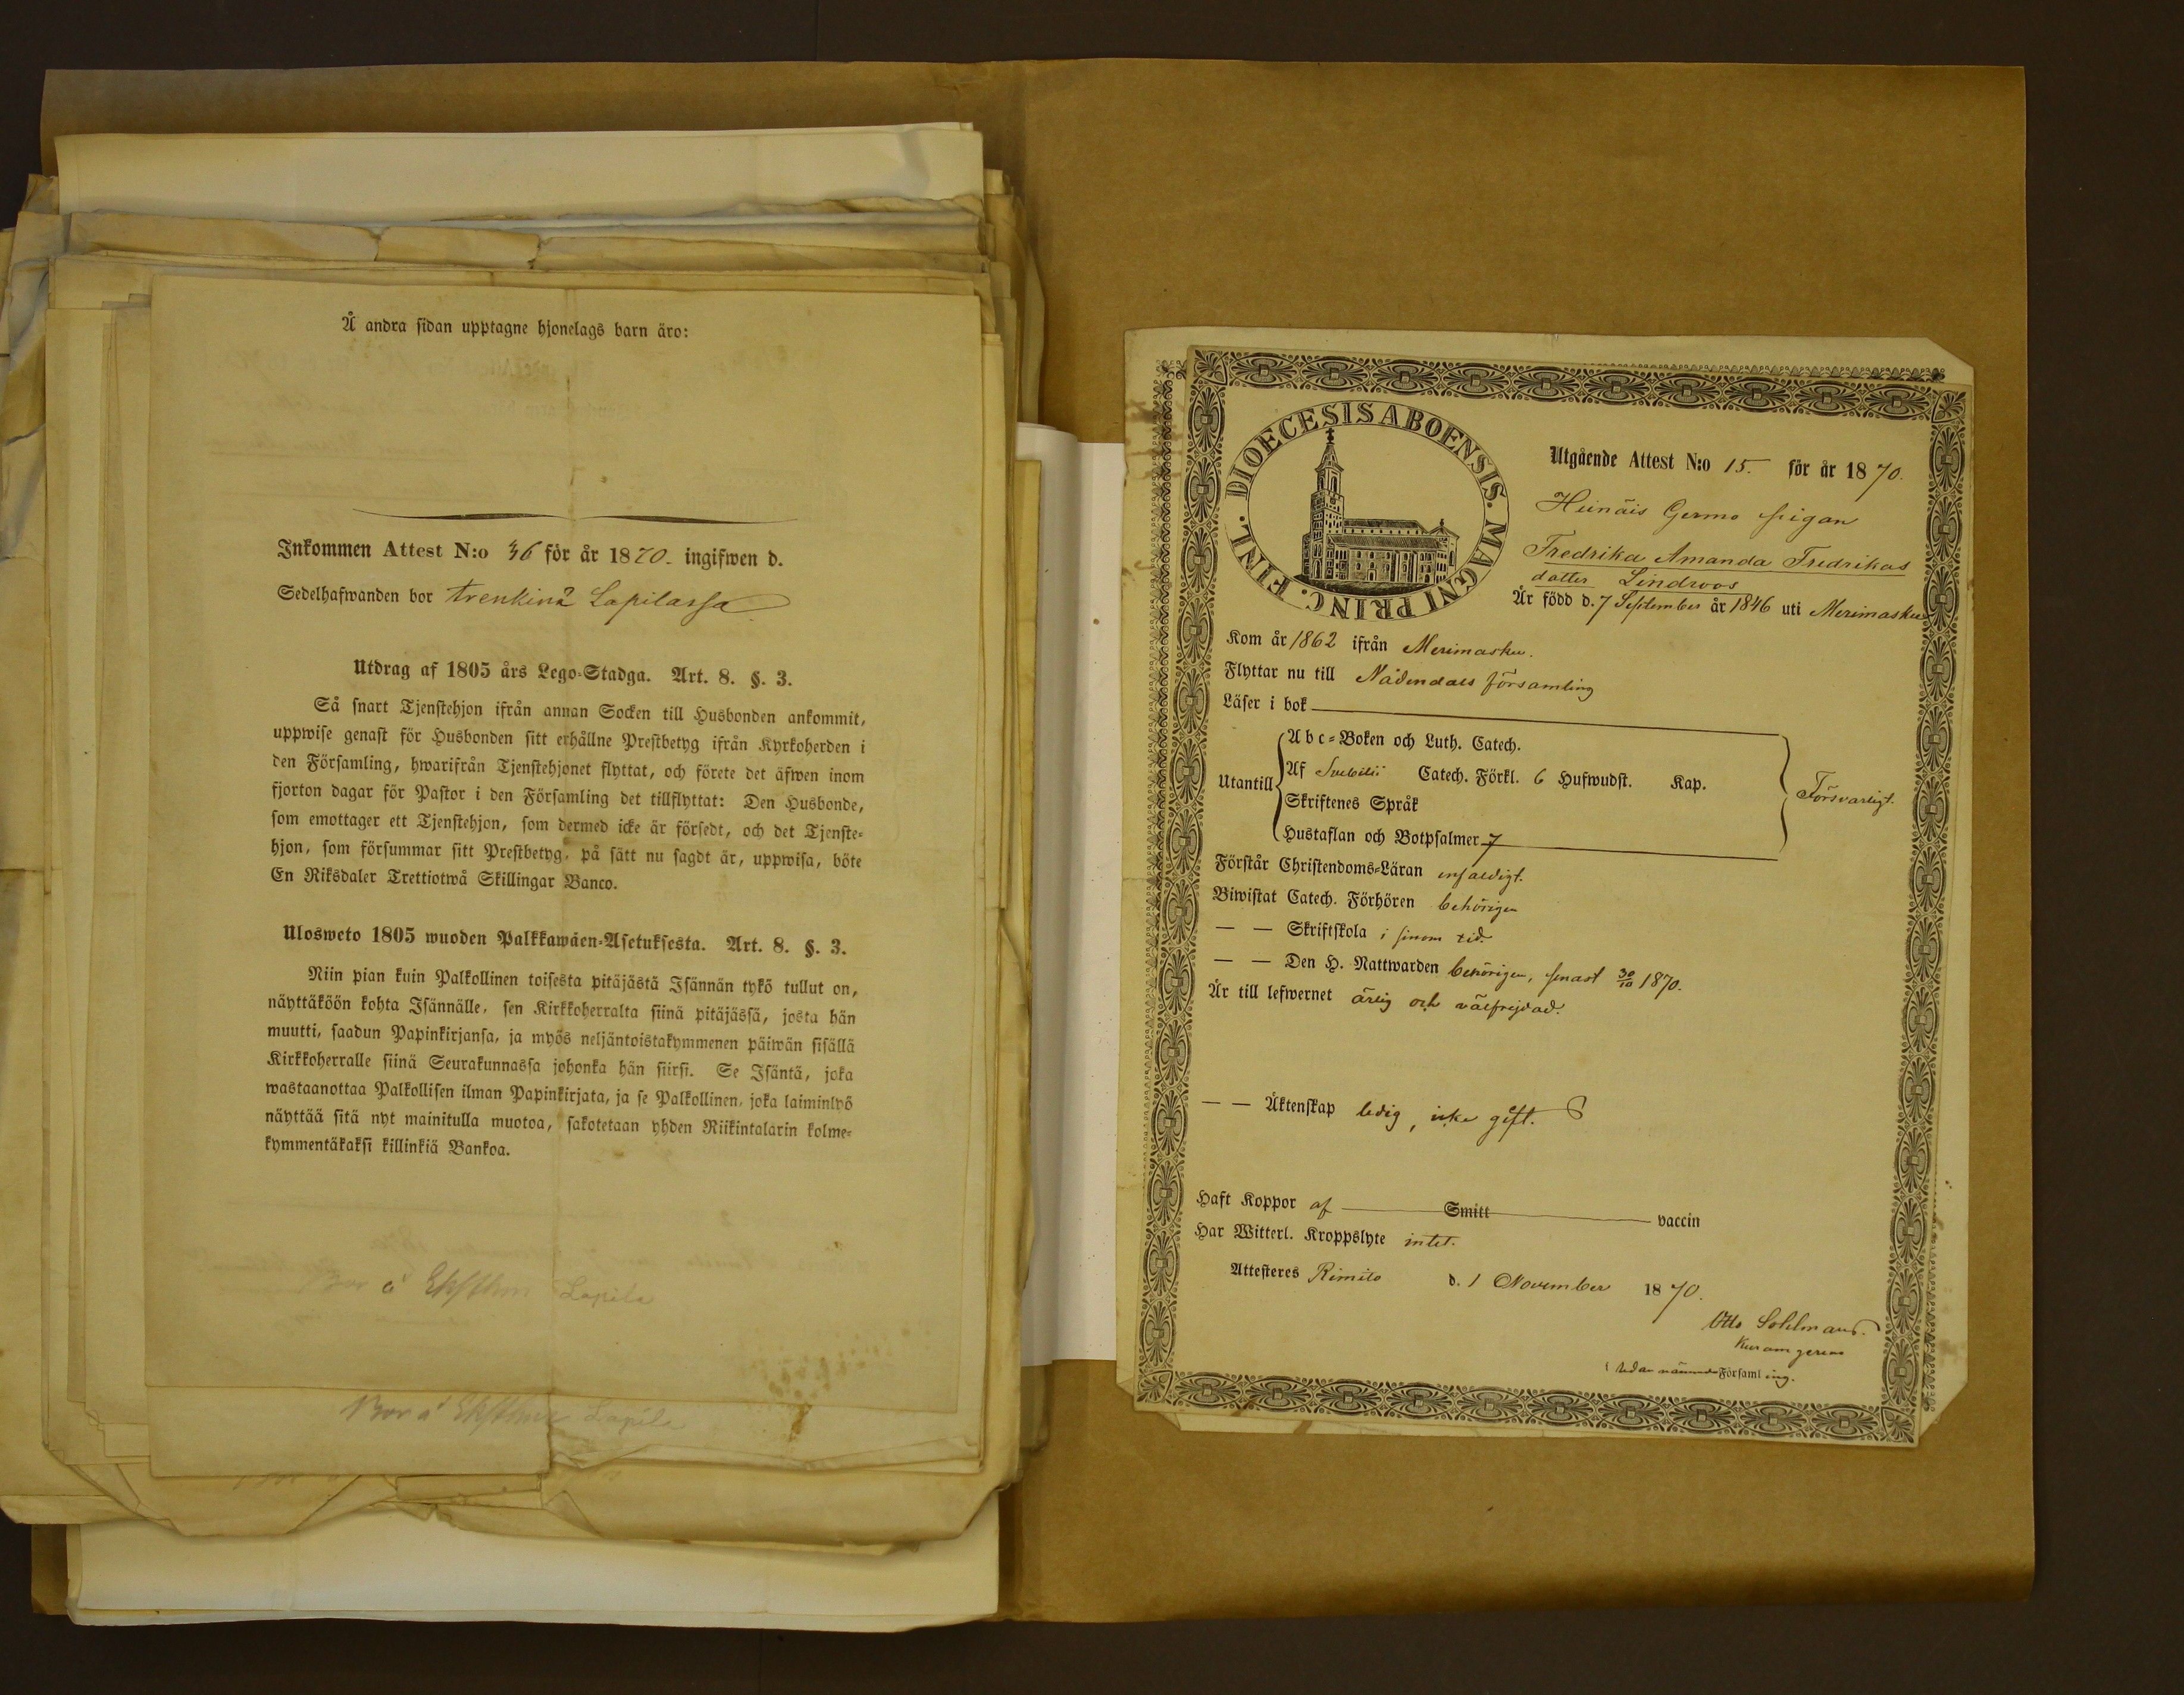 Å andra sidan upptagne hjonelags barn äro:
Inkommen Attest N:o 36 för år 1870. ingifwen d.
Sedelhafwanden bor trenkinä Lapilassa
Utdrag af 1805 års Lego-Stadga. Art. 8. §. 3.
Så snart Tjenstehjon ifrån annan Socken till Husbonden ankommit,
uppwise genast för Husbonden sitt erhållne Prestbetyg ifrån Kyrkoherden i
den Församling, hwarifrån Tjenstehjonet flyttat, och förete det äfwen inom
fjorton dagar för Pastor i den Församling det tillflyttat: Den Husbonde,
som emottager ett Tjenstehjon, som dermed icke är försedt, och det Tjenste-
hjon, som försummar sitt Prestbetyg, på sätt nu sagdt är, uppwisa, böte
En Riksdaler Trettiotwå Skillingar Banco.
Ulosweto 1805 wuoden Palkkawäen-Asetuksesta. Art. 8. §. 3.
Niin pian kuin Palkollinen toisesta pitäjästä Isännän tykö tullut on,
näyttäköön kohta Isännälle, sen Kirkkoherralta siinä pitäjässä, josta hän
muutti, saadun Papinkirjansa, ja myös neljäntoistakymmenen päiwän sisällä
Kirkkoherralle siinä Seurakunnassa johonka hän siirsi. Se Isäntä, joka
wastaanottaa Palkollisen ilman Papinkirjata, ja se Palkollinen, joka laiminlyö
näyttää sitä nyt mainitulla muotoa, sakotetaan yhden Riikintalarin kolme-
kymmentäkaksi killinkiä Bankoa.
Bor å Lapila
Bor å Lapila
DIOECESIS ABOENSIS. MAGNI PRINC. FINL.
Utgående Attest N:o 15. för år 1870.
Heinäis Germo pigan
Fredrika Amanda Fredrikas
dotter Lindroos
Är född d. 7 September år 1846 uti Merimasku
Kom år 1862 ifrån Merimasku.
Flyttar nu till Nådendals församling
Läser i bok
Utantill
Abc-Boken och Luth. Catech.
Af Svebilii Catech. Förkl. 6 Hufwudst. Kap.
Skriftenes Språk
Hustaflan och Botpsalmer 7
Försvarligt.
Förstår Christendoms-Läran enfaldigt.
Biwistat Catech. Förhören behörigen
— — Skriftskola i sinom tid.
— — Den H. Nattwarden behörigen, senast 30/10 1870.
Är till lefwernet ärlig och välfrejdad.
— — Äktenskap ledig, icke gift.
Haft Koppor af Smitt vaccin
Har Witterl. Kroppslyte intet.
Attesteres Rimito d. 1 November 1870.
Otto Sohlman
i nämnde Församling.